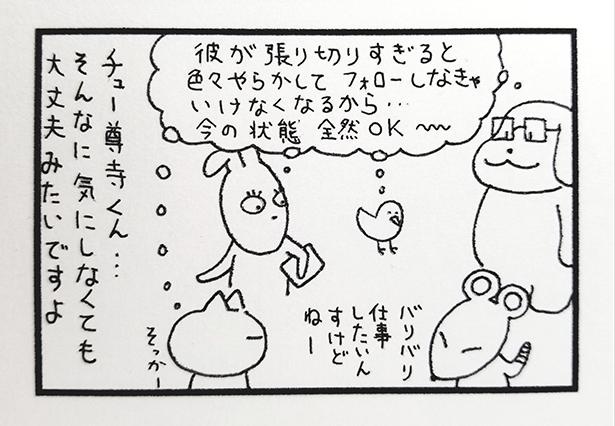 彼が張り切りすぎると
色々やらかして フォローしなきゃ
いけなくなるから…
今の状態 全然OK〜
チュー尊寺くん…
そんなに気にしなくても
大丈夫みたいですよ
バリバリ
仕事
したいん
すけど
ねー
そっかー